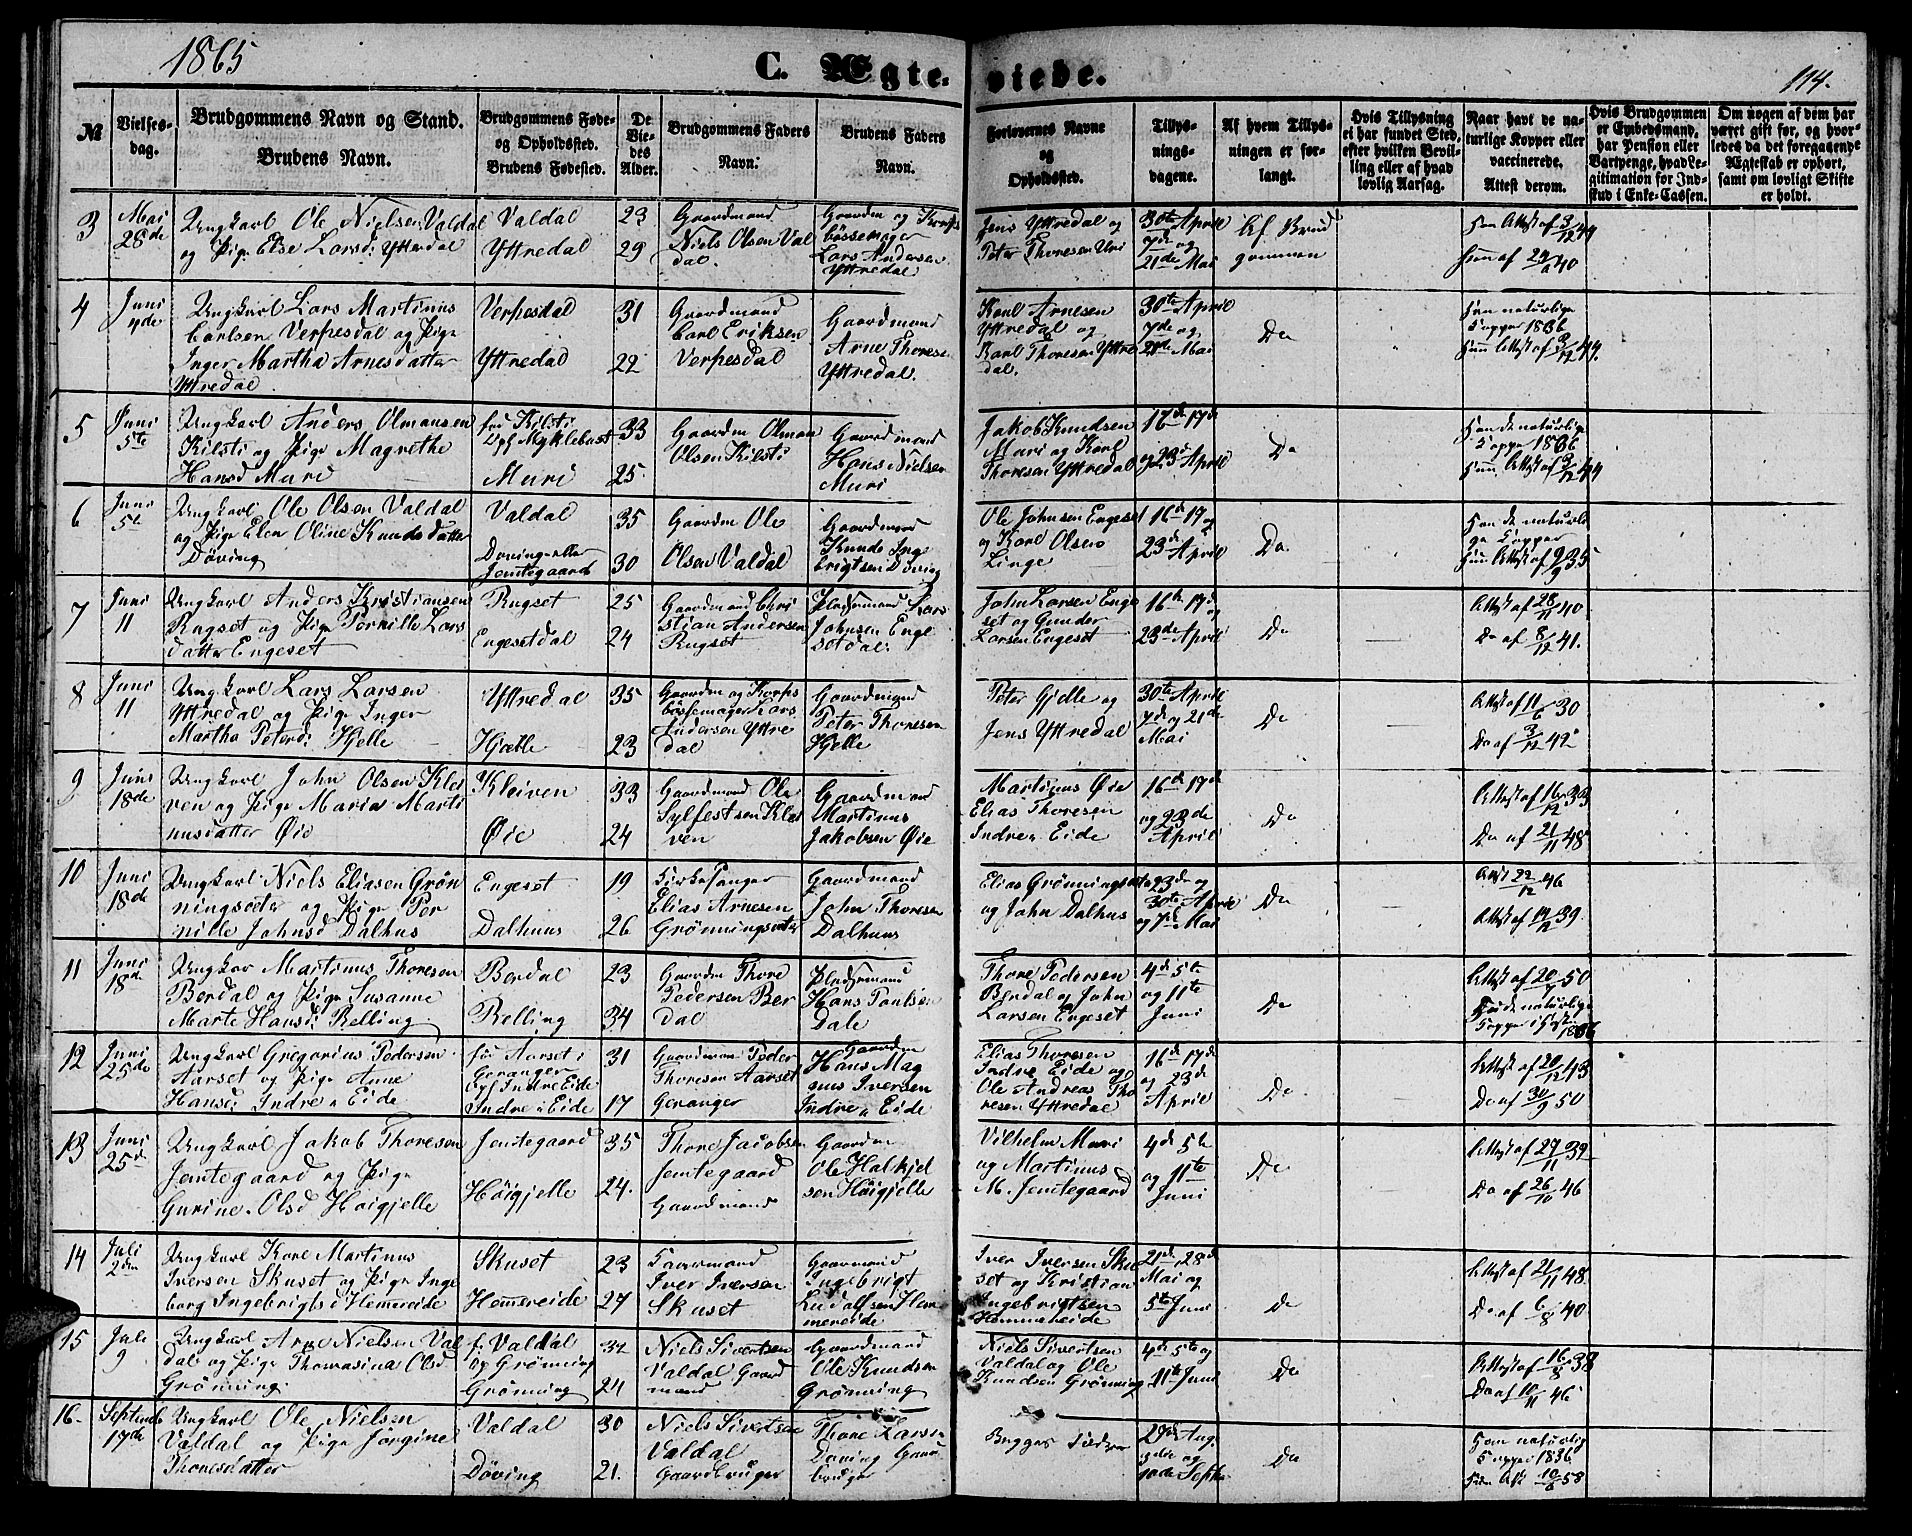 1865
C. Ægte- viede.
114.
№
Vielses-
dag.
Brudgommens Navn og Stand.
Brudens Navn.
Brudgommens Føde-
og Opholdssted.
Brudens Fødested.
De
Vie-
des
Alder.
Brudgommens Faders
Navn.
Brudens Faders
Navn.
Forlovernes Navne
og
Opholdssted.
Tillys-
nings-
dagene.
Af hvem Tillys-
ningen er for-
langt.
Hvis Tillysning
ei har fundet Sted,
efter hvilken Bevil-
ling eller af hvad
lovlig Aarsag.
Naar havt de na-
turlige Kopper eller
vaccinerede.
Attest derom.
Hvis Brudgommen
er Embedsmand,
har Pension eller
Vartpenge, hvad Le-
gitimation for Ind-
skud i Enke-Cassen.
Om nogen af dem har
været gift før, og hvor-
ledes da det foregaaende
Ægteskab er ophørt,
samt om lovligt Skifte
er holdt.
3
Mai
28de
Ungkarl Ole Nielsen Valdal
og Pige Else Larsd: Yttredal
Valdal
Yttredal
23
29
Gaardmand
Niels Olsen Val
dal.
Gaardm og Korps
bøssemager
Lars Andersen
Yttredal
Jens Yttredal og
Peter Thoresen Uri
30te April
7de og
21de Mai
Af Brud
gommen
Han Attest af 3/12 44
Hun af 40
4
Juni
4de
Ungkarl Lars Martinus
Carlsen Verpesdal og Pige
Inger Martha Arnesdatter
Yttredal
Verpesdal
Yttredal
31
22
Gaardmand
Carl Eriksen
Verpesdal
Gaardmand
Arne Thoresen
Yttredal.
Karl Arnesen
Yttredal og
Karl Thoresen Yttre
dal.
30te April
7de og
21de Mai
Do
Han naturlige
Kopper 1836
Hun Attest af 3/12 44.
5
Juni
5te
Ungkarl Anders Olmansen
Kilsti og Pige Magrethe
Hansd Muri
før Kilsti
Opf Myklebust
Muri
33
25
Gaardm Olman
Olsen Kilsti
Gaardmand
Hans Nielsen
Muri
Jakob Knudsen
Muri og Karl
Thoresen Yttredal
16de 17de
og 23de April
Do
Han de naturlige
Kopper 1836
Hun Attest af 3/12 44
6
Juni
5te
Ungkarl Ole Olsen Valdal
og Pige Elen Oline Knudsdatter
Døving
Valdal
Døving eller
Jemtegaard
35
30
Gaardm Ole
Olsen Valdal
Gaardmand
Knud Inge
brigtsen Døving
Ole Johnsen Engeset
og Karl Olsen
Linge
16de 17de og
23de April
Do.
Han de naturli
ge Kopper
Hun Attest af 9/9 35
7
Juni
11
Ungkarl Anders Kristiansen
Rugset og Pige Pernille Lars
datter Engeset
Rugset
Engesetdal
25
24
Gaardmand Chri
stian Andersen
Rugset
Pladsemand Lars
Johnsen Enge
setdal.
John Larsen Enge
set og Gunder
Larsen Engeset
16de 17de
23de April
Do
Attest af 28/11 40
Do af 8/12 41.
8
Juni
11
Ungkarl Lars Larsen
Yttredal og Pige Inger
Martha Petersd: Hjelle
Yttredal
Hjelle
35
23
Gaardm og Korps
bøssemager Lars
Andersen Yttre
dal
Gaardmand
Peter Thoresen
Hjelle
Peter Gjelle og
Jens Yttredal
30te April
7de og 21de
Mai
Do
Attest af 11/6 30
Do af 3/12 42
9
Juni
18de
Ungkarl John Olsen Klei
ven og Pige Maria Marti
nusdatter Øie
Kleiven
Øie
33
24
Gaardmand Ole
Sylfestsen Klei
ven
Gaardmand
Martinus
Jakobsen Øie
Martinus Øie
Elias Thoresen
Indre Eide
16de 17de
og 23de
April
Do
Attest af 16/12 33
Do af 21/11 48
10
Juni
18de
Ungkarl Niels Eliasen Grøn
ningsæter og Pige Per
nille Johnsd Dalhus
Engeset
Dalhuus
19
26
Kirkesanger
Elias Arnesen
Grønningsæter
Gaardmand
John Thoresen
Dalhuus
Elias Grønningsæter
og John Dalhus
23de og
30te April
og 7de Mai
Do
Attest 22/12 46
Attest af 14/12 39.
11
Juni
18de
Ungkar Martinus Thoresen
Berdal og Pige Susanne
Marte Hansd: Relling
Berdal
Relling
23
34
Gaardm Thore
Pedersen Ber
dal
Pladsemand
Hans Paulsen
Dale
Thore Pedersen
Berdal og John
Larsen Engeset
4de 5te
og 11te
Juni
Do
Attest af 50
Hun de naturlige
Kopper i Høsten
1836
12
Juni
25de
Ungkarl Gregorius Pedersen
Aarset og Pige Anne
Hansd: Indre Eide
før Aarset i
Geranger
Opf Indre Eide
Indre Eide
31
17
Gaardmand Peder
Thoresen Aarset
Geranger
Gaardm
Hans Mag
nus Iversen
Indre Eide
Elias Thoresen
Indre Eide og
Ole Andreas Tho
resen Yttredal
16de 17de
og 23de
April
Do
Attest af 20/12 43
Do af 30/9 50
13
Juni
25de
Ungkarl Jakob Thoresen
Jemtegaard og Pige
Gurine Olsd Høigjelle
Jemtegaard
Høigjelle
35
24.
Thore Jacobsen
Jemtegaard
Gaardmand
Gaardm
Ole Halkjel
sen Høigjelle
Vilhelm Muri
og Martinus
M. Jemtegaard
4de 5te
og 11te
Juni
Do
Attest af 27/11 32
Do af 26/10 46
14
Juli
2den
Ungkarl Karl Martinus
Iversen Skuset og Pige Inge
borg Ingebrigtsd Hemmereide
Skuset
Hemmereide
23
27
Gaardmand
Iver Iversen
Skuset
Gaardmand
Ingebrigt
Ludolfsen Hem
mereide
Iver Iversen Sku
set og Kristian
Ingebrigtsen
Hemmereide
21de 28de
Mai og
5te Juni
Do
Attest af 21/11 48.
Do af 6/8 40
15
Juli
9
Ungkarl Arne Nielsen Val
dal og Pige Thomasina Olsd
Grønning.
f. Valdal
Op Grønning
Grønning
32
21
Niels Sivertsen
Valdal Gaard
mand
Gaardmand
Ole Knudsen
Grønning
Niels Sivertsen
Valdal og Ole
Knudsen Grønning
4de 5te og
11te Juni
Do
Attest af 16/8 38
Do af 10/11 46
16
Septemb
17de
Ungkarl Ole Nielsen
Valdal og Pige Jørgine
Thoresdatter
Valdal
Døving
30
21.
Niels Sivertsen
Valdal
Gaardbruger
Thore Larsen
Døving Gaard
bruger
Begges Fædre
Aug
og
10de Septbr
Do
Han naturlig
Kopper i 1836
Hun Att 10/8 58